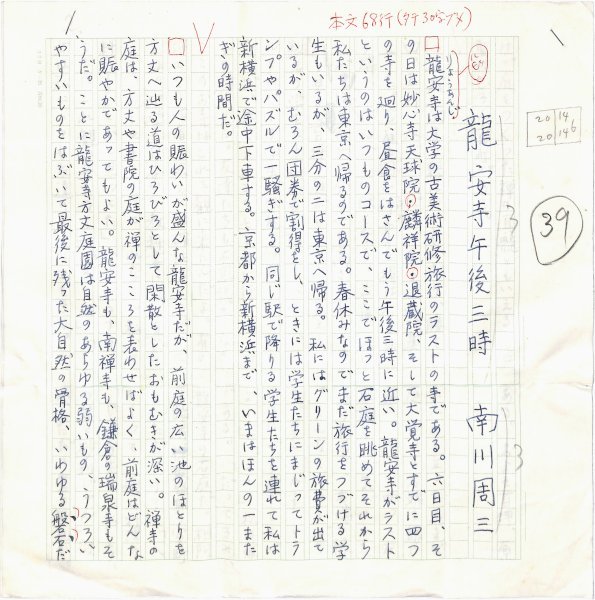 本文68行(タテ30字ヅメ)
1
1
20 14
20 14 6
39
ルビ
龍安寺午後三時
3
南川周三
3
りょうあんじ
龍安寺は大学の古美術研修旅行のラストの寺である。六日目、そ
の日は妙心寺天球院・麟祥院・退蔵院、そして大覚寺とすでに四つ
の寺を廻り、昼食をはさんでもう午後三時に近い。龍安寺がラスト
というのはいつものコースで、ここでほっと石庭を眺めてそれから
私たちは東京へ帰るのである。春休みなのでまだ旅行をつづける学
生もいるが、三分の二は東京へ帰る。私にはグリーンの旅費が出て
いるが、むろん団券で割得をし、ときには学生たちにまじってトラ
ンプやパズルで一騒ぎする。同じ駅で降りる学生たちを連れて私は
新横浜で途中下車する。京都から新横浜まで、いまはほんの一また
ぎの時間だ。
いつも人の賑わいが盛んな龍安寺だが、前庭の広い池のほとりを
方丈へ辿る道はひろびろとして閑散としたおもむきが深い。禅寺の
庭は、方丈や書院の庭が禅のこころを表わせばよく、前庭はどんな
に賑やかであってもよい。龍安寺も、南禅寺も、鎌倉の瑞泉寺もそ
うだ。ことに龍安寺方丈庭園は自然のあらゆる弱いもの、うつろい
やすいものをはぶいて最後に残った大自然の骨格、いわゆる盤石だ